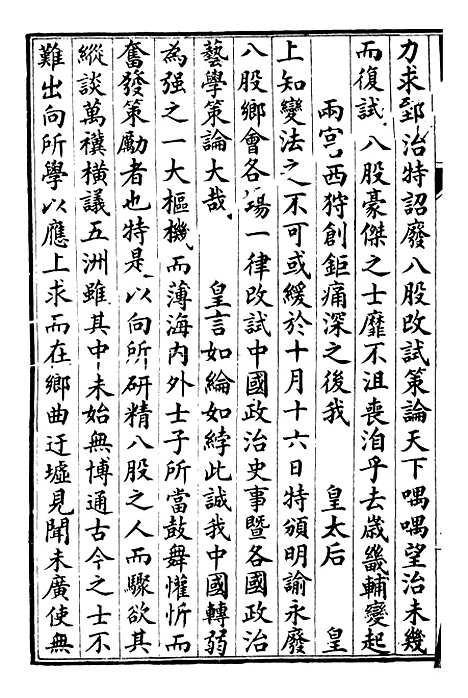 力求郅治特詔廢八股改試策論天下喁喁望治未幾
而復試八股豪傑之士靡不沮喪洎乎去歲畿輔變起
兩宮西狩創鉅痛深之後我　皇太后　皇
上知變法之不可或緩於十月十六日特頒明諭永廢
八股鄉會各場一律改試中國政治史事暨各國政治
藝學策論大哉　皇言如綸如綍此誠我中國轉弱
為强之一大樞機而薄海內外士子所當鼓舞懽忻而
奮發策勵者也特是以向所研精八股之人而驟欲其
縱談萬禩橫議五洲雖其中未始無博通古今之士不
難出向所學以應上求而在鄉曲迂墟見聞未廣使無